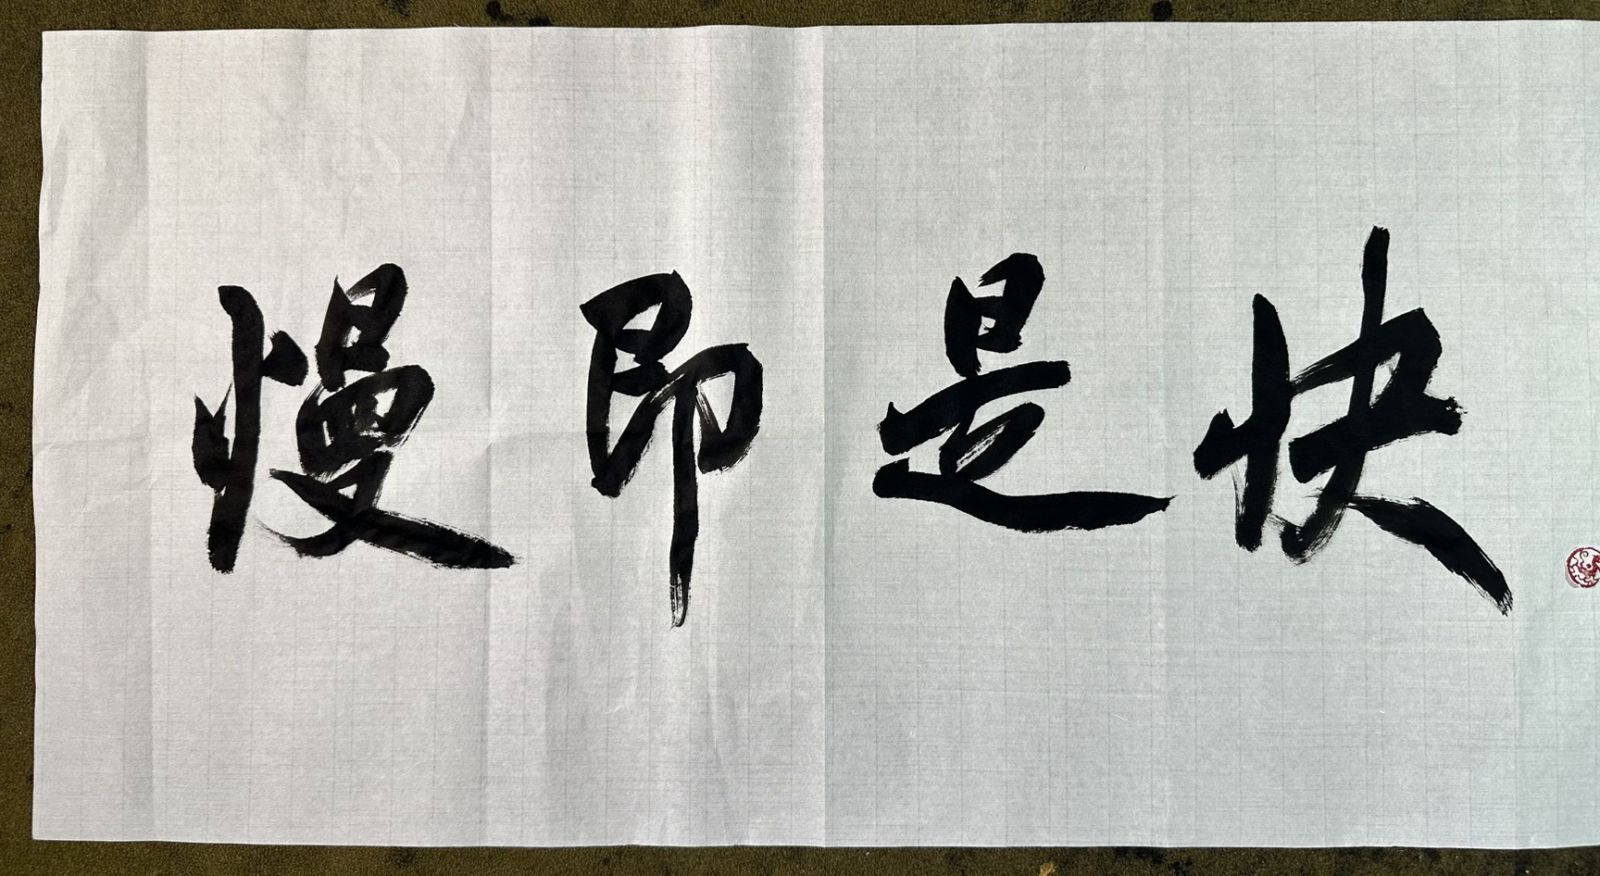 慢即是快